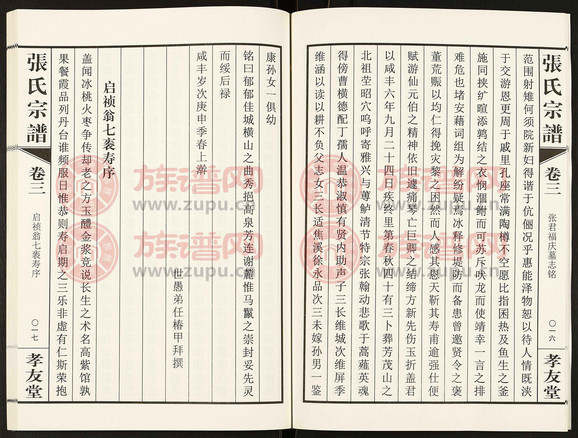 張氏宗譜
卷三
张君福庆墓志铭
〇一六
孝友堂
范围射雉何须院新妇得谐于伉俪况乎惠能泽物恕以待人情既浃
于交游恩更周于戚里孔座常满陶樽不空愿比指困热及鱼生之釜
施同挟纩暄添鹑结之衣悯涸鲋而可苏斥吠龙而使靖幸一言之排
难危也堵安藉词组为解纷疑焉冰释修堤防而备患曾邀贤令之褒
董荒赈以均仁得挽灾黎之困然而人感其恩天靳其寿甫逾强仕便
赋游仙元伯之精神依旧遽痛琴亡巨卿之结缔方新先伤玉折盖君
以咸丰六年九月二十四日疾终里第春秋四十有三卜葬芳茂山之
北祖茔昭穴呜呼寄雅兴与蓴鲈清节特宗张翰动悲歌于蒿薤英魂
得傍曹横德配丁孺人温恭淑慎有贤内助声子三长维城次维屏季
维涵以读以耕不负父志女三长适焦溪徐永品次三未嫁孙男一鉴
康孙女一俱幼
铭曰郁郁佳城横山之曲秀挹高泉芳连谢麓惟马鬣之崇封妥先灵
而绥后禄
咸丰岁次庚申季春上澣
世愚弟任椿甲拜撰
启祯翁七袠寿序
盖闻冰桃火枣争传却老之方玉醴金浆竞说长生之术名高紫馆孰
果餐霞品列丹台谁频服日惟恭则寿启期之三乐非虚有仁斯荣抱
張氏宗譜
卷三
启祯翁七袠寿序
〇一七
孝友堂
族谱网
www.zupu.cn
族谱网
www.zupu.cn
族谱网
www.zupu.cn
族谱网
www.zupu.cn